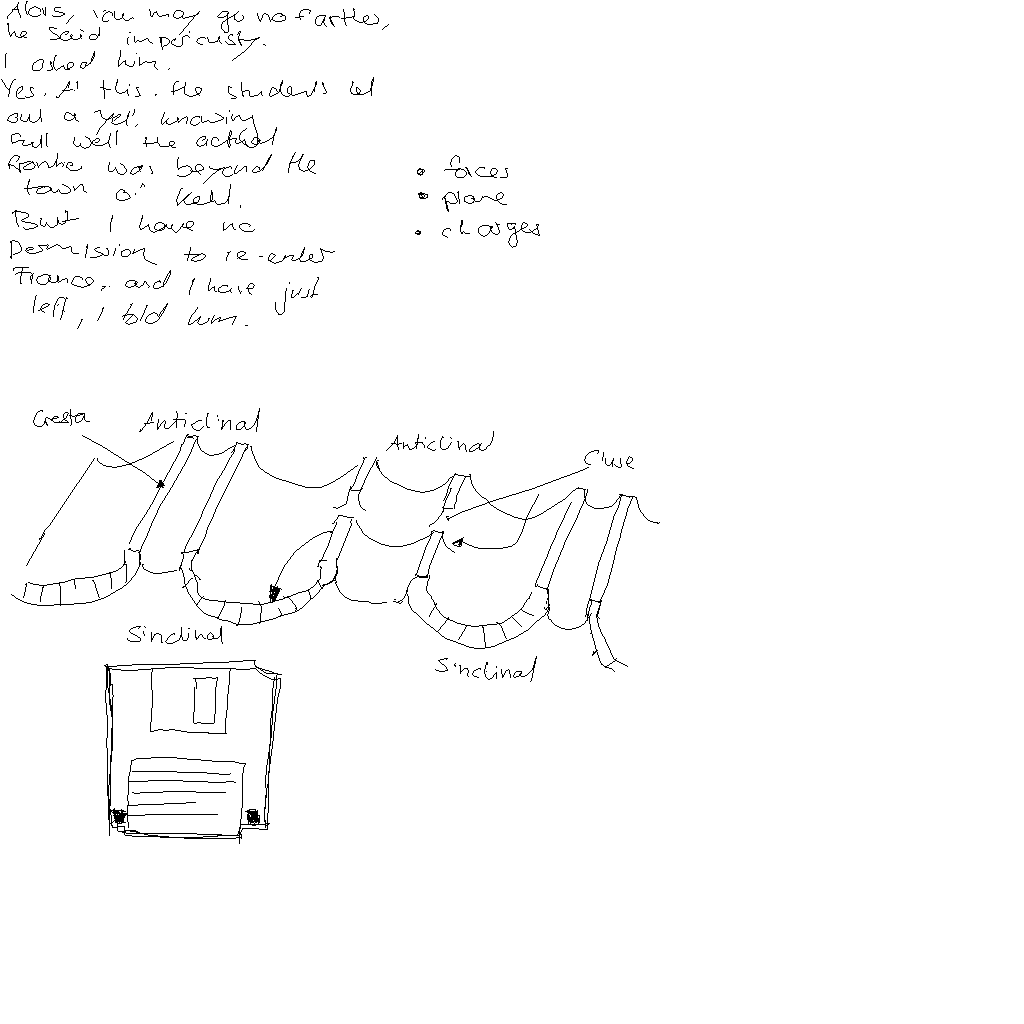 Alors, you may go no farther,
he said imperiously.
I asked him.
Yes. At this, the students let
out a yell, knowing
full well the actual
frontier was beyond the
town of Kehl.
But I have no
permission to re-enter
France, and I have just
left, I told him.
• faces
• plane
• charges
Cresta
Anticlinal
Anticlinal
Cluse
Sinclinal
Sinclinal